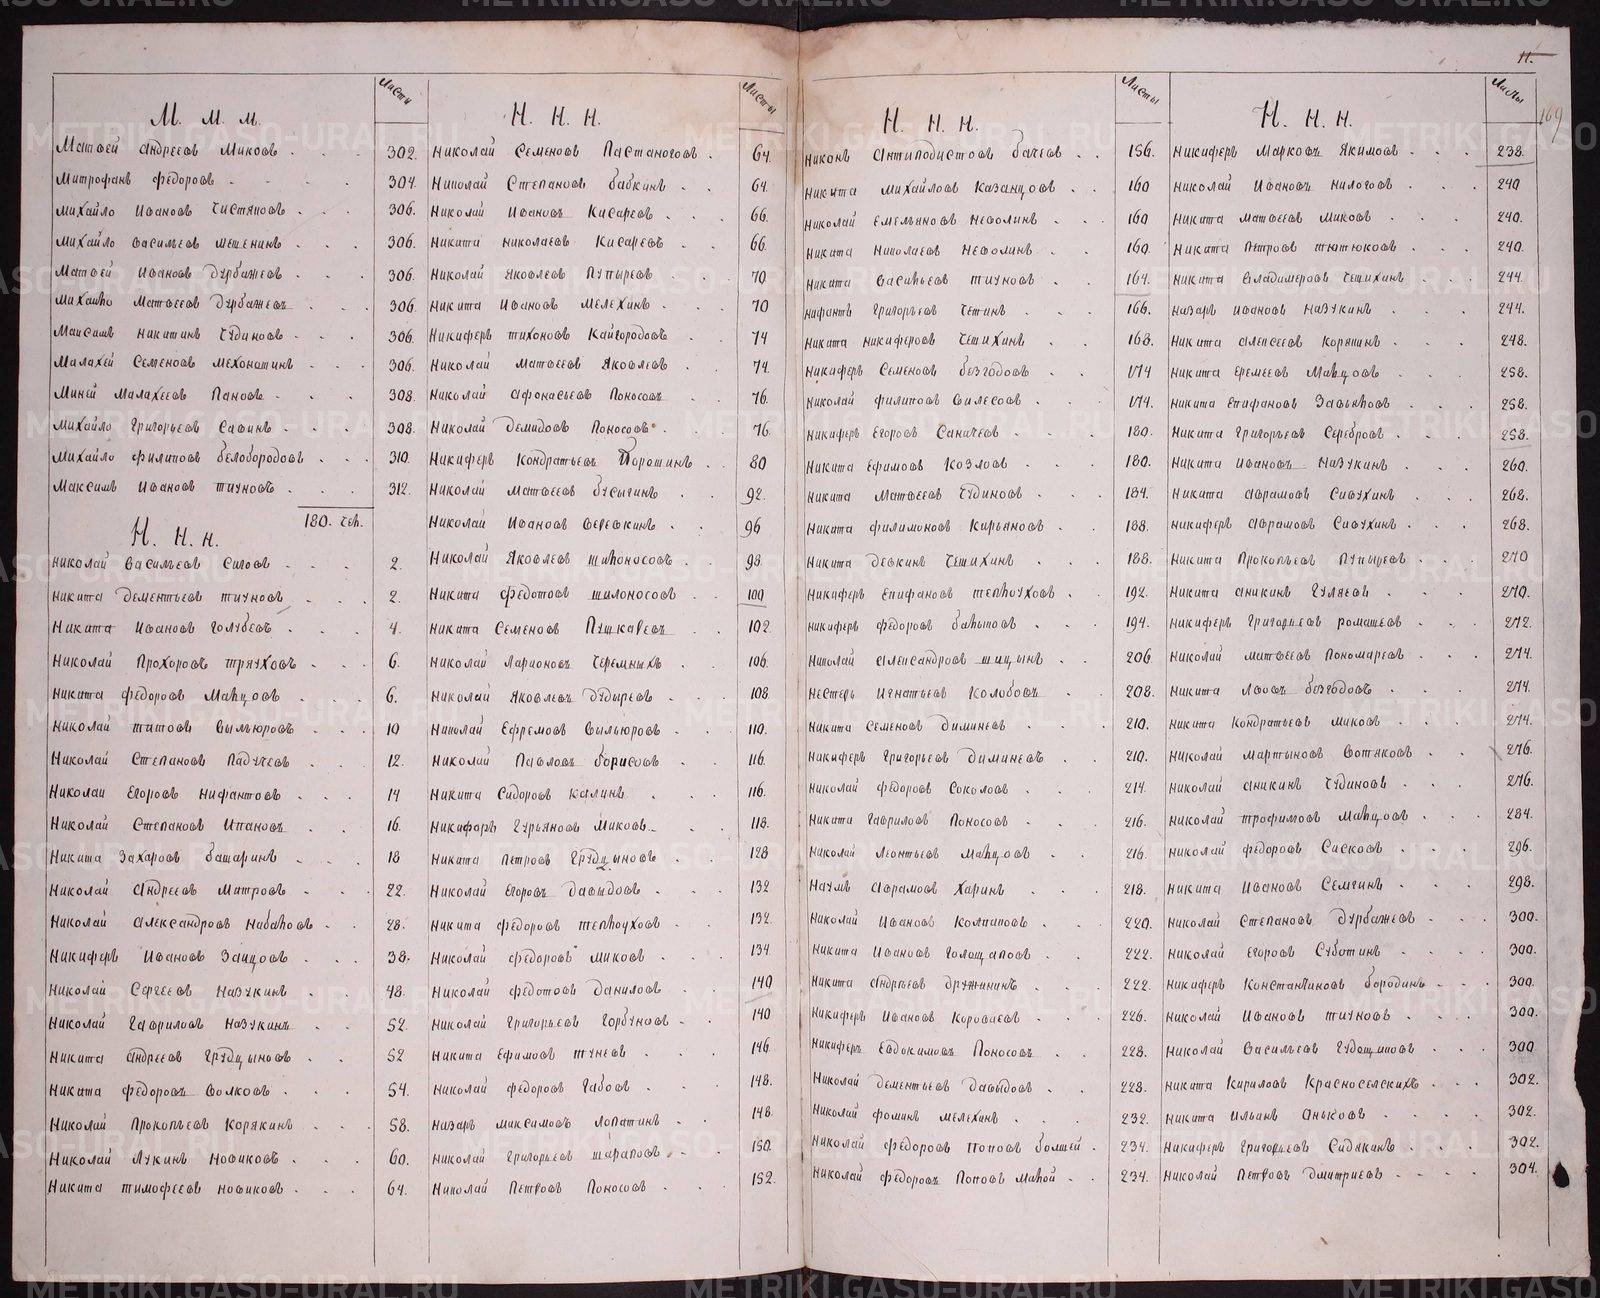 11.
169
Листы
М. М. М.
Матвей Андреевъ Миковъ 302.
Митрофанъ Федоровъ 304.
Михайло Ивановъ Чистяковъ 306.
Михайло Васильевъ Мешенинъ 306.
Матвей Ивановъ Дурбажевъ 306.
Михайло Матвеевъ Дурбажевъ 306.
Максимъ Никитинъ Чудиновъ 306.
Малахей Семеновъ Мехоношинъ 306.
Миней Малахеевъ Пановъ 308.
Михайло Григорьевъ Савинъ 308.
Михайло Филиповъ Белобородовъ 310.
Максимъ Ивановъ Тиуновъ 312.
180. чел.
Н. Н. Н.
Николай Васильевъ Силовъ 2.
Никита Дементьевъ Тиуновъ 2.
Никита Ивановъ Голубевъ 4.
Николай Прохоровъ Тряуховъ 6.
Никита Федоровъ Мальцовъ 6.
Николай Титовъ Вылыоровъ 10
Николай Степановъ Падучевъ 12.
Николай Егоровъ Нифантовъ 14
Николай Степановъ Ипановъ 16.
Никита Захаровъ Башаринъ 18
Николай Андреевъ Митровъ 22.
Николай Александровъ Набаловъ 28.
Никиферъ Ивановъ Заицовъ 38.
Николай Сергеевъ Назукинъ 48.
Николай Гавриловъ Назукинъ 52.
Никита Андреевъ Грудцыновъ 52
Никита Федоровъ Волковъ 54.
Николай Прокопьевъ Корякинъ 58.
Николай Лукинъ Новиковъ 60.
Никита Тимофеевъ Новиковъ 64.
Листы
Н. Н. Н.
Николай Семеновъ Пастаноговъ 64.
Николай Степановъ Бабкинъ 64.
Николай Ивановъ Кисаревъ 66.
Никита Николаевъ Кисаревъ 66.
Николай Яковлевъ Пупыревъ 70
Никита Ивановъ Мелехинъ 70
Никиферъ Тихоновъ Кайгородовъ 74
Николай Матвеевъ Яковлевъ 74.
Николай Афонасьевъ Поносовъ 76.
Николай Демидовъ Поносовъ 76.
Никиферъ Кондратьевъ Порошинъ 80
Николай Матвеевъ Бусыгинъ 92.
Николай Ивановъ Веревкинъ 96
Николай Яковлевъ Шилоносовъ 98
Никита Федотовъ Шилоносовъ 100
Никита Семеновъ Пушкаревъ 102.
Николай Ларионовъ Черемныхъ 106.
Николай Яковлевъ Дудыревъ 108.
Николай Ефремовъ Вылыоровъ 110.
Николай Павловъ Борисовъ 116.
Никита Сидоровъ Калинъ 116.
Никифоръ Гурьяновъ Миковъ 118.
Никита Петровъ Грудцыновъ 128
Николай Егоровъ Давыдовъ 132
Никита Федоровъ Теплоуховъ 132.
Николай Федоровъ Миковъ 134.
Николай Федотовъ Даниловъ 140
Николай Григорьевъ Горбуновъ 140
Никита Ефимовъ Туневъ 146.
Николай Федоровъ Габовъ 148.
Назаръ Максимовъ Лопатинъ 148.
Николай Григорьевъ Шараповъ 150.
Николай Петровъ Поносовъ 152.
Листы
Н. Н. Н.
Никонъ Антиподистовъ Бачевъ 156.
Никита Михайловъ Казанцовъ 160
Николай Емельяновъ Неволинъ 160
Никита Николаевъ Неволинъ 160.
Никита Васильевъ Тиуновъ 164.
Нифантъ Григорьевъ Четинъ 166.
Никита Никиферовъ Чешихинъ 168.
Никиферъ Семеновъ Безгодовъ 174
Николай Филиповъ Вилесовъ 174.
Никиферъ Егоровъ Саначевъ 180.
Никита Ефимовъ Козловъ 180.
Никита Матвеевъ Чудиновъ 184.
Никита Филимоновъ Кирьяновъ 188.
Никита Девкинъ Чешихинъ 188.
Никиферъ Епифановъ Теплоуховъ 192.
Никиферъ Федоровъ Балыновъ 194.
Николай Александровъ Шицынъ 206
Нестеръ Игнатьевъ Колобовъ 208.
Никита Семеновъ Диминевъ 210.
Никиферъ Григорьевъ Диминевъ 210.
Николай Федоровъ Соколовъ 214.
Никита Гавриловъ Поносовъ 216.
Николай Леонтьевъ Мальцовъ 216.
Наумъ Аврамовъ Харинъ 218.
Николай Ивановъ Колпаковъ 220.
Никита Ивановъ Голощаповъ 222.
Никита Андреевъ Дружининъ 222.
Никиферъ Ивановъ Короваевъ 226.
Никиферъ Евдокимовъ Поносовъ 228.
Николай Дементьевъ Давыдовъ 228.
Николай Фоминъ Мелехинъ 232.
Николай Федоровъ Поповъ Болшей 234.
Николай Федоровъ Поповъ Малой 234.
Листы
Н. Н. Н.
Никиферъ Марковъ Якимовъ 238.
Николай Ивановъ Нилоговъ 240
Никита Матвеевъ Миковъ 240.
Никита Петровъ Тютюковъ 240.
Никита Владимеровъ Чешихинъ 244.
Назаръ Ивановъ Назукинъ 244.
Никита Алексеевъ Корякинъ 248.
Никита Еремеевъ Мальцовъ 258.
Никита Епифановъ Завьяловъ 258.
Никита Григорьевъ Серебровъ 258.
Никита Ивановъ Назукинъ 260.
Никита Аврамовъ Сивухинъ 268.
Никиферъ Аврамовъ Сивухинъ 268.
Никита Прокопьевъ Пупыревъ 270
Никита Аникинъ Гуляевъ 270.
Никиферъ Григорьевъ Ромашевъ 272.
Николай Матвеевъ Пономаревъ 274.
Никита Львовъ Безгодовъ 274.
Никита Кондратьевъ Миковъ 274.
Николай Мартыновъ Вотяковъ 276.
Николай Аникинъ Чудиновъ 276.
Николай Трофимовъ Мальцовъ 284.
Николай Федоровъ Сасковъ 296.
Никита Ивановъ Семгинъ 298.
Николай Степановъ Дурбажевъ 300.
Николай Егоровъ Суботинъ 300.
Никиферъ Константиновъ Бородинъ 300.
Николай Ивановъ Тиуновъ 300.
Николай Васильевъ Гудощиковъ 300
Никита Кириловъ Красноселскихъ 302.
Никита Ильинъ Аныковъ 302.
Никиферъ Григорьевъ Судякинъ 302.
Николай Петровъ Дмитриевъ 304.
METRIKI.GASO-URAL.RU